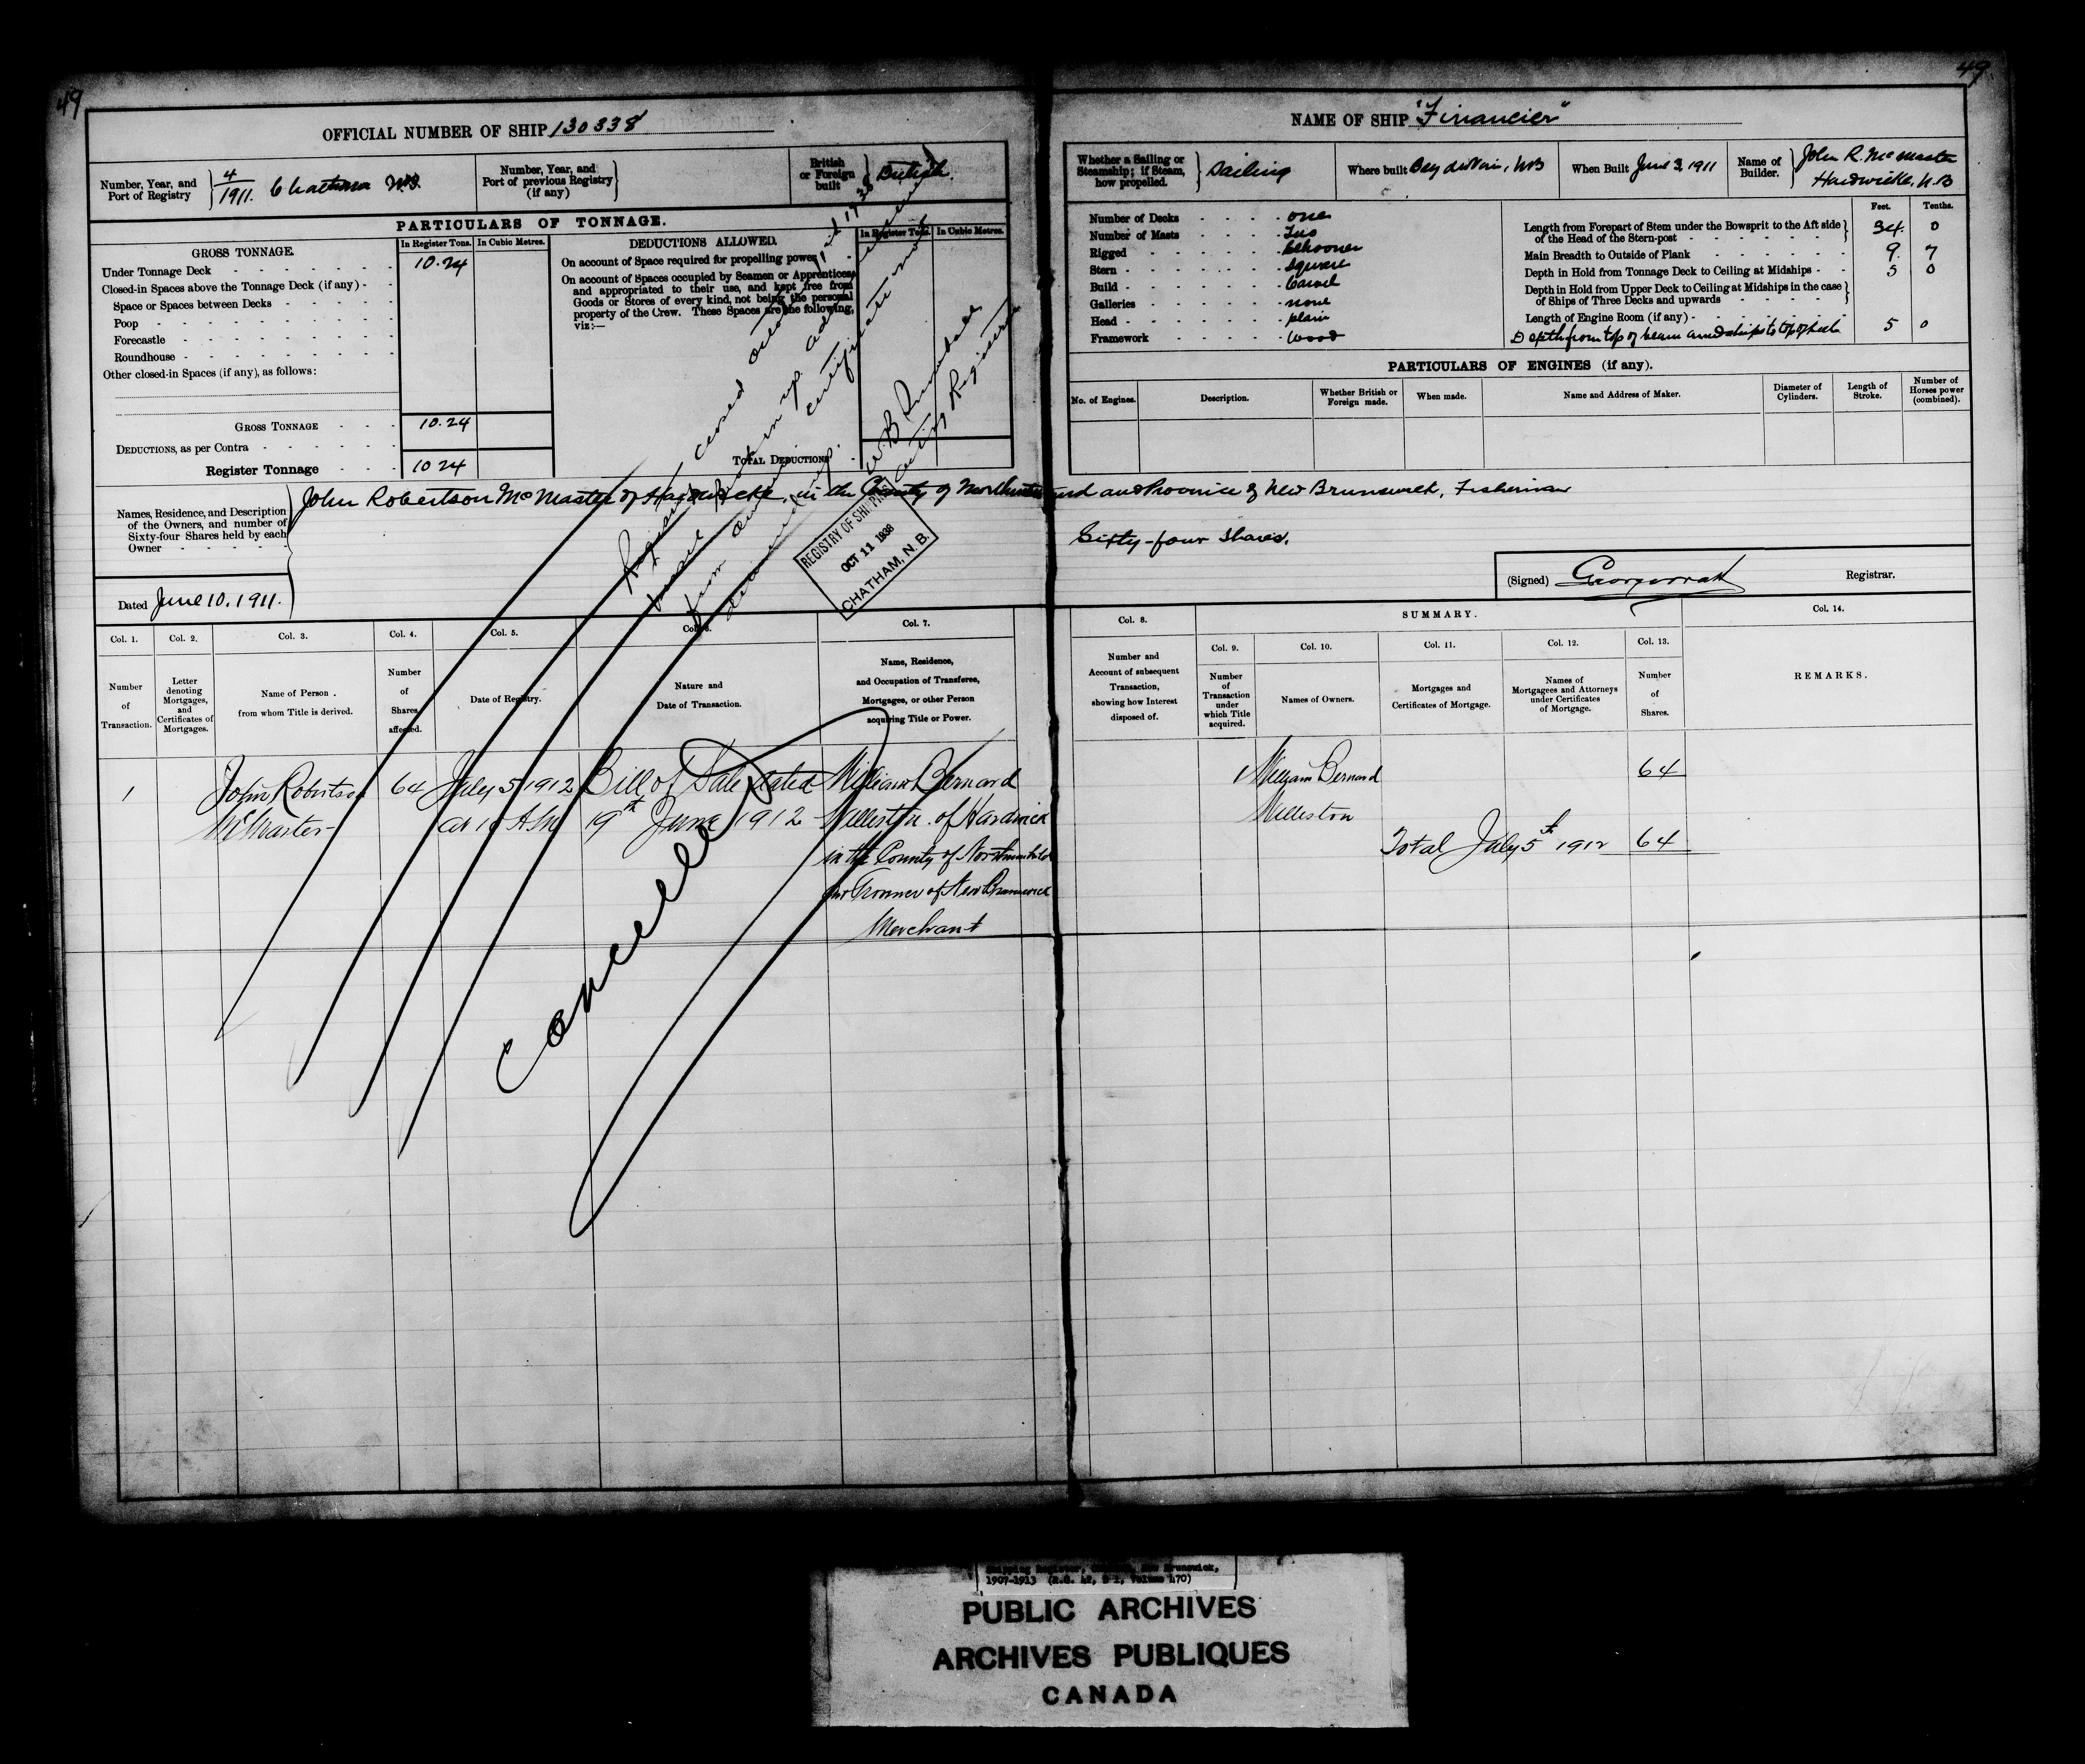 49
49
OFFICIAL NUMBER OF SHIP 130338
NAME OF SHIP "Financier"
Number, Year, and Port of Registry
4/1911. Chatham N.B.
Number, Year, and Port of previous Registry (if any)
British or Foreign built
British.
Whether a Sailing or Steamship; if Steam, how propelled.
Sailing
Where built Bay du Vin, NB
When Built June 3, 1911
Name of Builder.
John R. McMaster
Hardwicke, N.B
PARTICULARS OF TONNAGE.
GROSS TONNAGE.
In Register Tons.
In Cubic Metres.
DEDUCTIONS ALLOWED.
In Register Tons.
In Cubic Metres.
Under Tonnage Deck 10.24
Closed-in Spaces above the Tonnage Deck (if any)
Space or Spaces between Decks
Poop
Forecastle
Roundhouse
Other closed-in Spaces (if any), as follows:
GROSS TONNAGE 10.24
DEDUCTIONS, as per Contra
Register Tonnage 10 24
On account of Space required for propelling power
On account of Spaces occupied by Seamen or Apprentices,
and appropriated to their use, and kept free from
Goods or Stores of every kind, not being the personal
property of the Crew. These Spaces are the following,
viz:—
TOTAL DEDUCTIONS
Number of Decks one
Number of Masts Two
Rigged Schooner
Stern Square
Build Carvel
Galleries none
Head plain
Framework Wood
Feet. Tenths.
Length from Forepart of Stem under the Bowsprit to the Aft side
of the Head of the Stern-post 34. 0
Main Breadth to Outside of Plank 9. 7
Depth in Hold from Tonnage Deck to Ceiling at Midships 5 0
Depth in Hold from Upper Deck to Ceiling at Midships in the case
of Ships of Three Decks and upwards
Length of Engine Room (if any)
Depth from top of beam amidships to top of keel 5 0
PARTICULARS OF ENGINES (if any).
No. of Engines.
Description.
Whether British or Foreign made.
When made.
Name and Address of Maker.
Diameter of Cylinders.
Length of Stroke.
Number of Horses power (combined).
Names, Residence, and Description
of the Owners, and number of
Sixty-four Shares held by each
Owner
John Robertson McMaster of Hardwicke, in the County of Northumberland and Province of New Brunswick, Fisherman
Sixty-four Shares.
Dated June 10. 1911.
(Signed)
Registrar.
Registry closed
from
REGISTRY OF SHIPPING
OCT 11 1938
CHATHAM, N.B.
Cancelled
Col. 1.
Col. 2.
Col. 3.
Col. 4.
Col. 5.
Col. 6.
Col. 7.
Col. 8.
SUMMARY.
Col. 9.
Col. 10.
Col. 11.
Col. 12.
Col. 13.
Col. 14.
Number of Transaction.
Letter denoting Mortgages, and Certificates of Mortgages.
Name of Person from whom Title is derived.
Number of Shares affected.
Date of Registry.
Nature and Date of Transaction.
Name, Residence, and Occupation of Transferee, Mortgagee, or other Person acquiring Title or Power.
Number and Account of subsequent Transaction, showing how Interest disposed of.
Number of Transaction under which Title acquired.
Names of Owners.
Mortgages and Certificates of Mortgage.
Names of Mortgagees and Attorneys under Certificates of Mortgage.
Number of Shares.
REMARKS.
1 John Robertson 64 July 5 1912 Bill of Sale dated William Bernard
McMaster at 10 A.M 19th June 1912 Williston of Hardwick
in the County of Northumberland
and Province of New Brunswick
Merchant
1 William Bernard 64
Williston
Total July 5th 1912 64
1907-1913 (R.G. 42, Volume 470)
PUBLIC ARCHIVES
ARCHIVES PUBLIQUES
CANADA